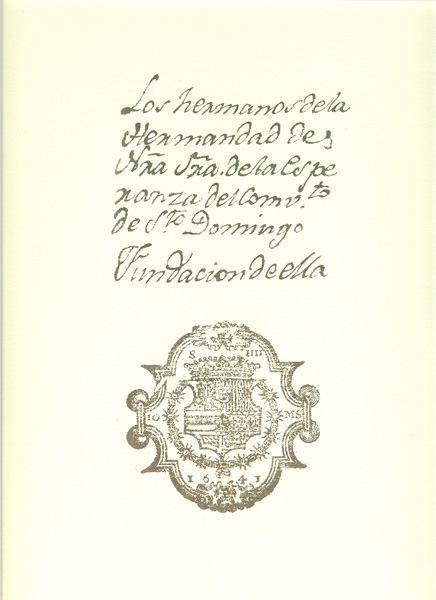 Los hermanos de la
Hermandad de
Nrã Srã. de la Espe
ranza del Comv.to
de S.to Domingo
Fundacion de ella
S IIII
10 MS
1641